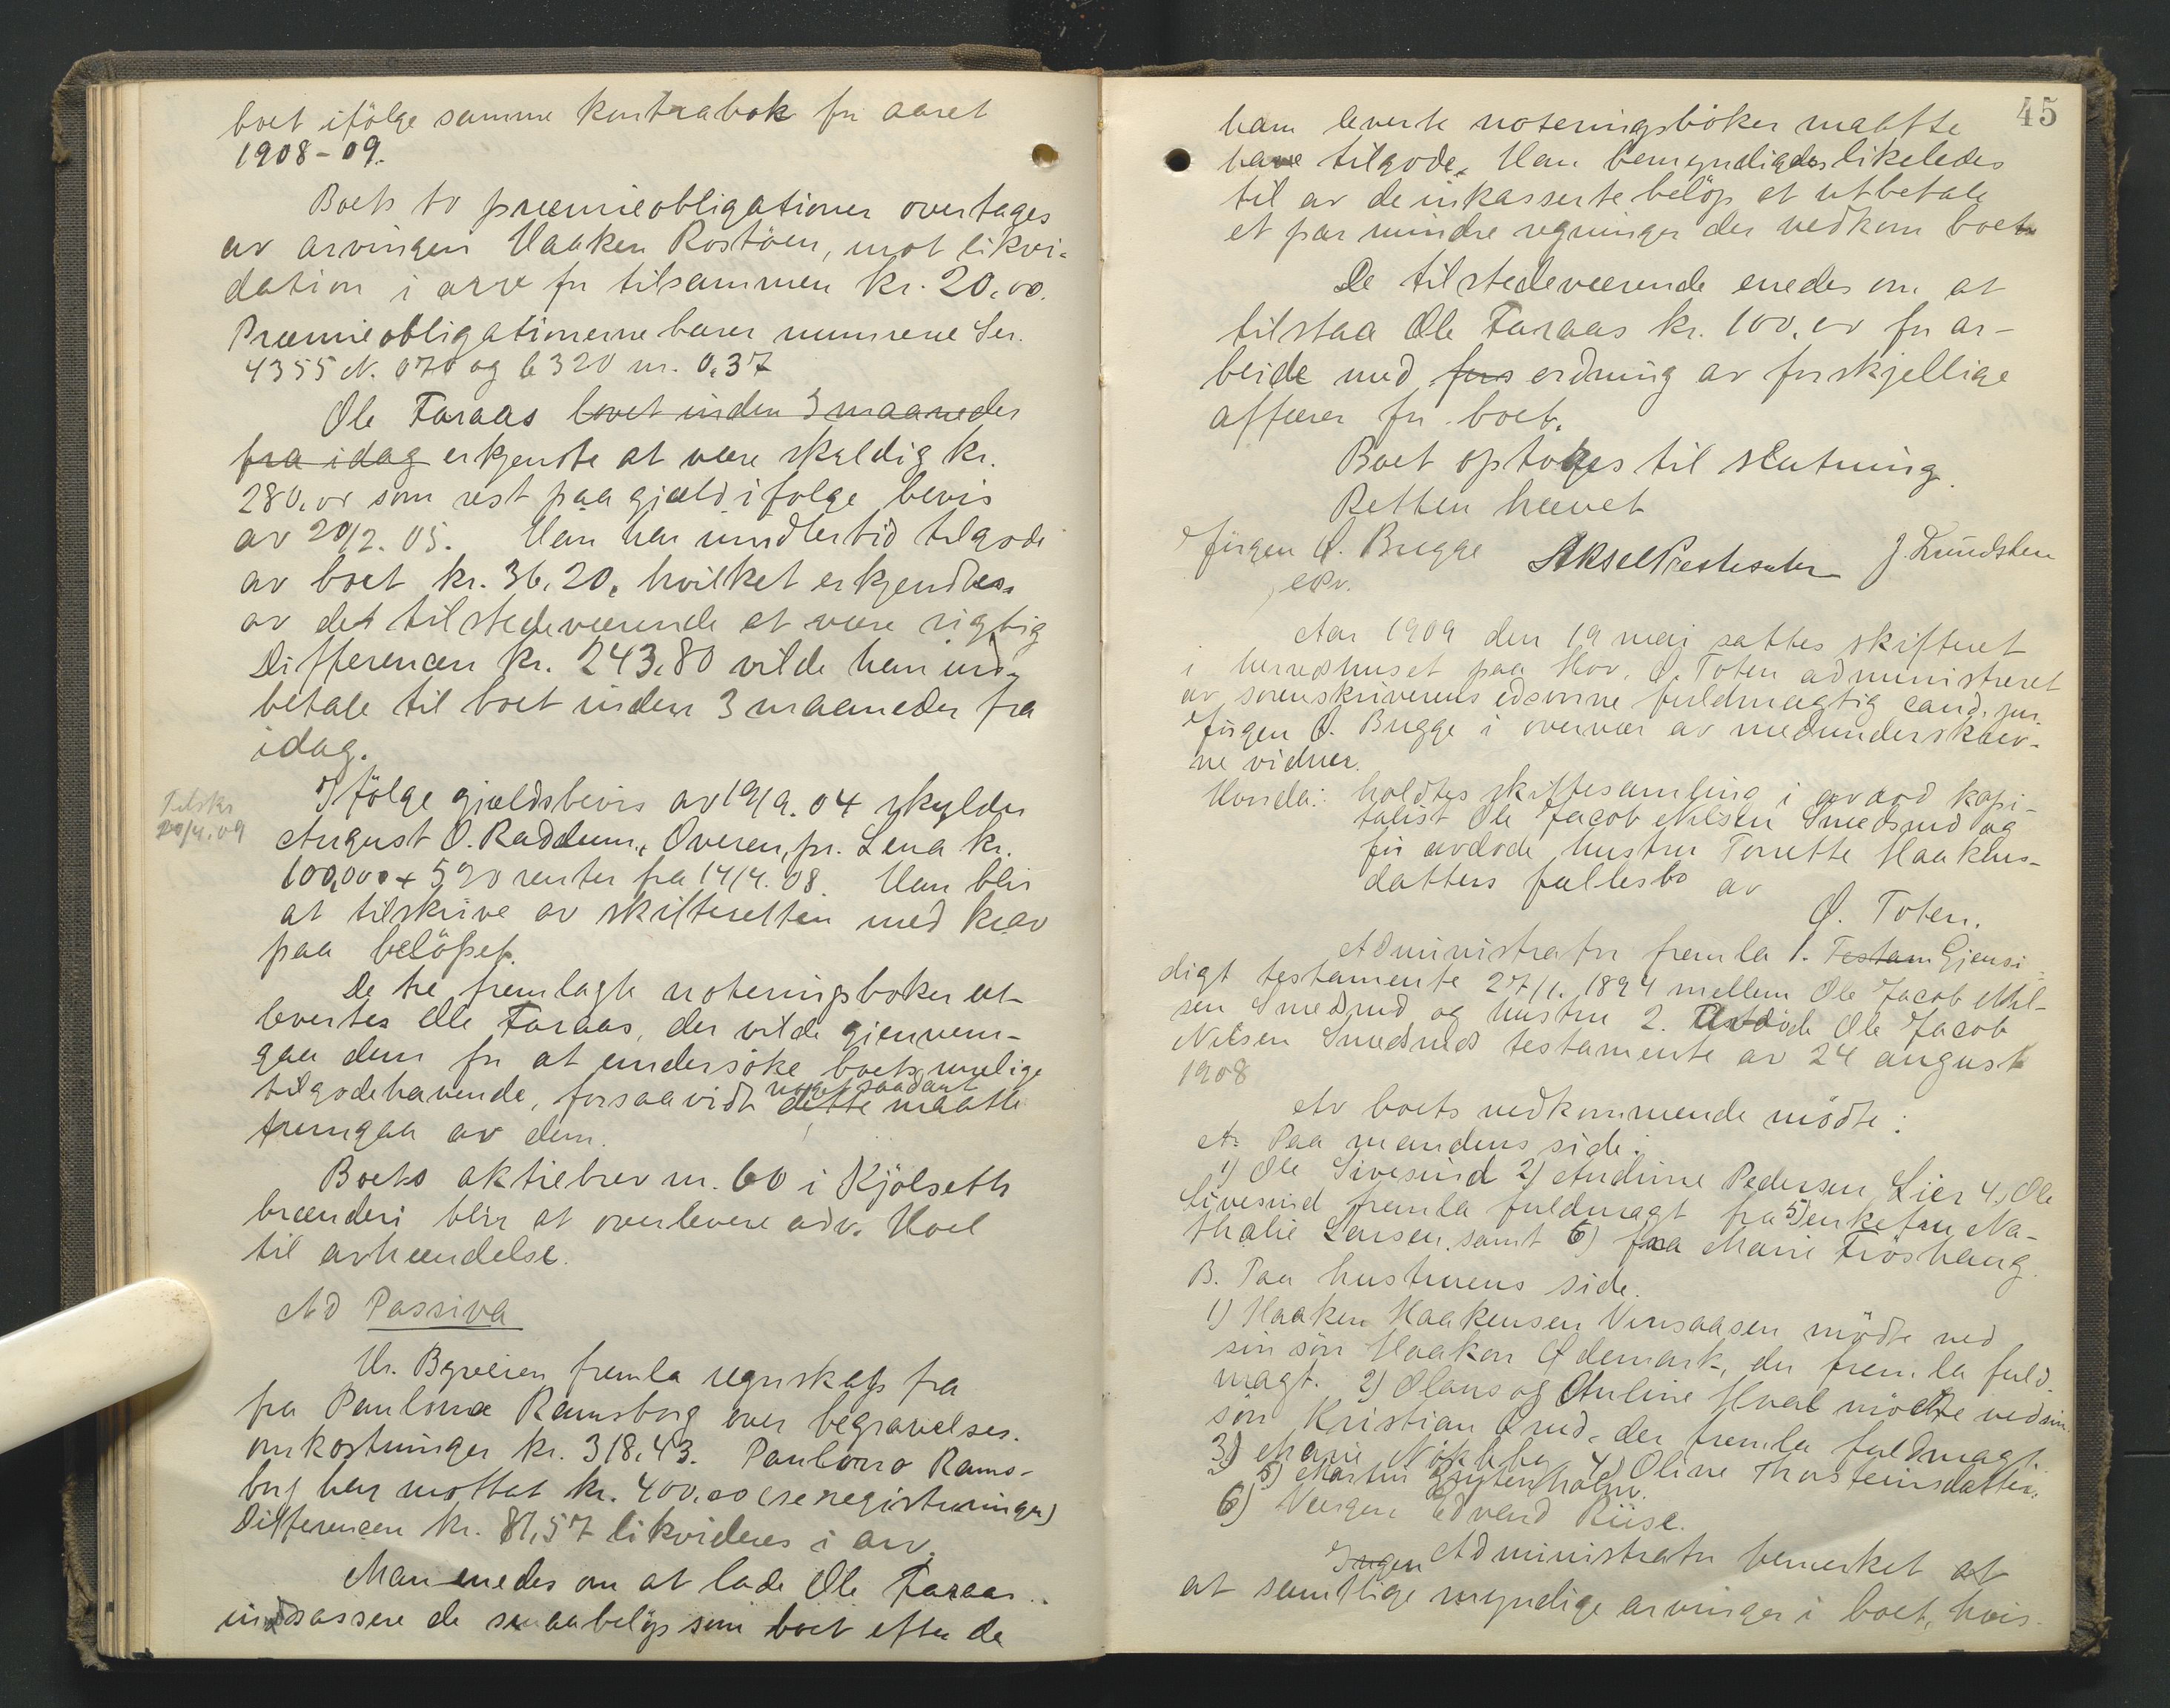 boet ifölge samme kontrabok for aaret
1908-09.
Boets to præmieobligationer overtages
av arvingen Haaken Rostöen, mot likvi-
dation i arv for tilsammen kr. 20,00.
Præmieobligationerne bærer numrene Ser.
4355 N. 070 og 6320 nr. 0.37
Ole Faraas lovet inden 3 maaneder
fra idag erkjendte at være skyldig kr.
280,00 som rest paa gjæld ifölge bevis
av 20/2. 05. Han har imidlertid tilgode
av boet kr. 36,20, hvilket erkjendtes
av det tilstedeværende at være rigtig
Differencen kr. 243,80 vilde han ind-
betale til boet inden 3 maaneder fra
idag.
Tilskr
20/4.09
Ifölge gjældsbevis av 19/9. 04 skylder
August O. Raddum, Overen, pr. Lena kr.
600,00 + 5 % renter fra 14/4. 08. Han blir
at tilskrive av skifteretten med krav
paa belöpet.
De tre fremlagte noteringsböker ut-
levertes Ole Faraas, der vilde gjennem-
gaa dem for at undersöke boets mulige
tilgodehavende, forsaavidt dette maatte
noget saadant
fremgaa av dem.
Boets aktiebrev nr. 60 i Kjölseth
brænderi blir at overlevere adv. Hoel
til avhændelse.
Ad Passiva
Hr. Byveien fremla regnskap fra
fra Pauline Ramsborg over begravelses-
omkostninger kr. 318,43. Pauline Rams-
borg har mottat kr. 400,00 (se registreringen)
Differencen kr. 81,57 likvideres i arv.
Man enedes om at lade Ole Faraas
indkassere de smaabelöp som boet efter de
45
ham leverte noteringsböker maatte
have tilgode. Han bemyndigedes likeledes
til av de inkasserte belöp at utbetale
et par mindre regninger der vedkom boet
De tilstedeværende enedes om at
tilstaa Ole Faraas kr. 100,00 for ar-
beide med fors ordning av forskjellige
affærer for boet.
Boet optokes til slutning.
Retten hævet
Jörgen Ø. Bugge Aksel Prestesæter J. Lundsten
eksv.
Aar 1909 den 19 mai sattes skifteret
i herredshuset paa Hov, Ø. Toten administreret
av sorenskriverens edsvorne fuldmægtig cand. jur.
Jörgen Ø. Bugge i overvær av medunderskrev-
ne vidner.
Hvorda: holdtes skiftesamling i avdöd kapi-
talist Ole Jacob Nilsen Smedsrud og
för avdöde hustru Tonette Haakens-
datters fællesbo av
Ø. Toten.
Administrator fremla 1. Testam Gjensi-
digt testamente 27/1. 1894 mellem Ole Jacob Nil-
sen Smedsrud og hustru 2. Avdöde Ole Jacob
Nilsen Smedsruds testamente av 24 august
1908
Av boets vedkommende mödte:
A. Paa mandens side:
1) Ole Sivesind 2) Andrine Pedersen Lier 4) Ole
Sivesind fremla fuldmagt fra 5) enkefru Na-
thalie Larsen, samt 6) fra Marie Fröshaug.
B. Paa hustruens side.
1) Haaken Haakensen Vinsaasen mödte ved
sin sön Haakon Ødemark, der fremla fuld-
magt. 2) Olaus og Andine Hval mödte ved sin
sön Kristian Qrud, der fremla fuldmagt.
3) Marie Nökleby 4) Oline Thosteinsdatter.
5) Martin Grytenholm.
6) Værgen Edvard Riise.
Ingen Administrator bemerket at
at samtlige myndige arvinger i boet, hvis-